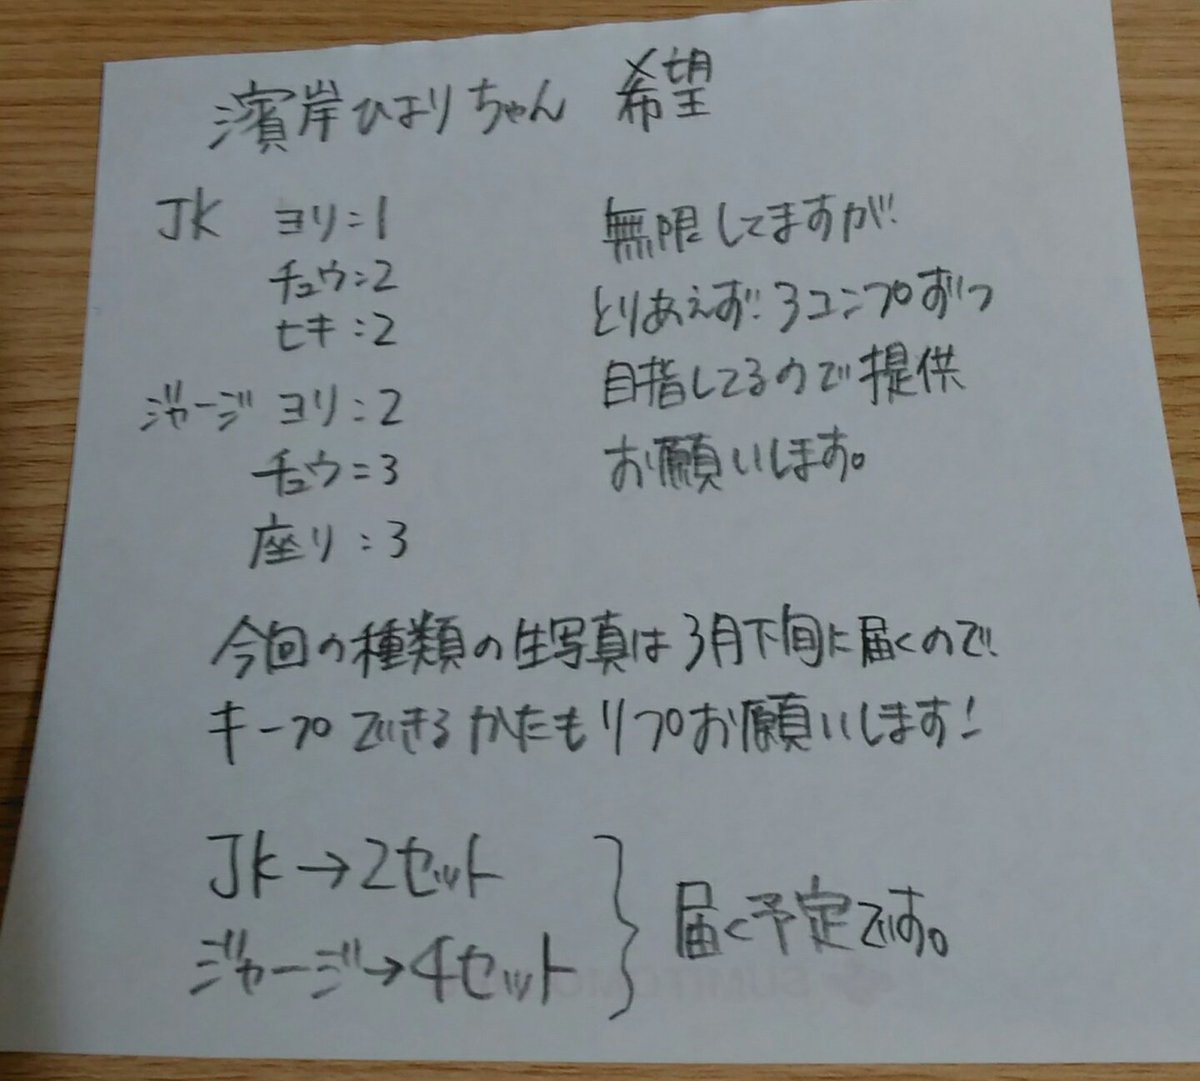 濱岸ひよりちゃん 希望
JK ヨリ:1
チュウ:2
ヒキ:2
ジャージ ヨリ:2
チュウ=3
座り:3
無限してますが
とりあえず3コンプずつ
目指してるので提供
お願いします。
今回の種類の生写真は3月下旬に届くので
キープできるかたもリプお願いします!
JK→2セット
ジャージ→4セット
届く予定です。